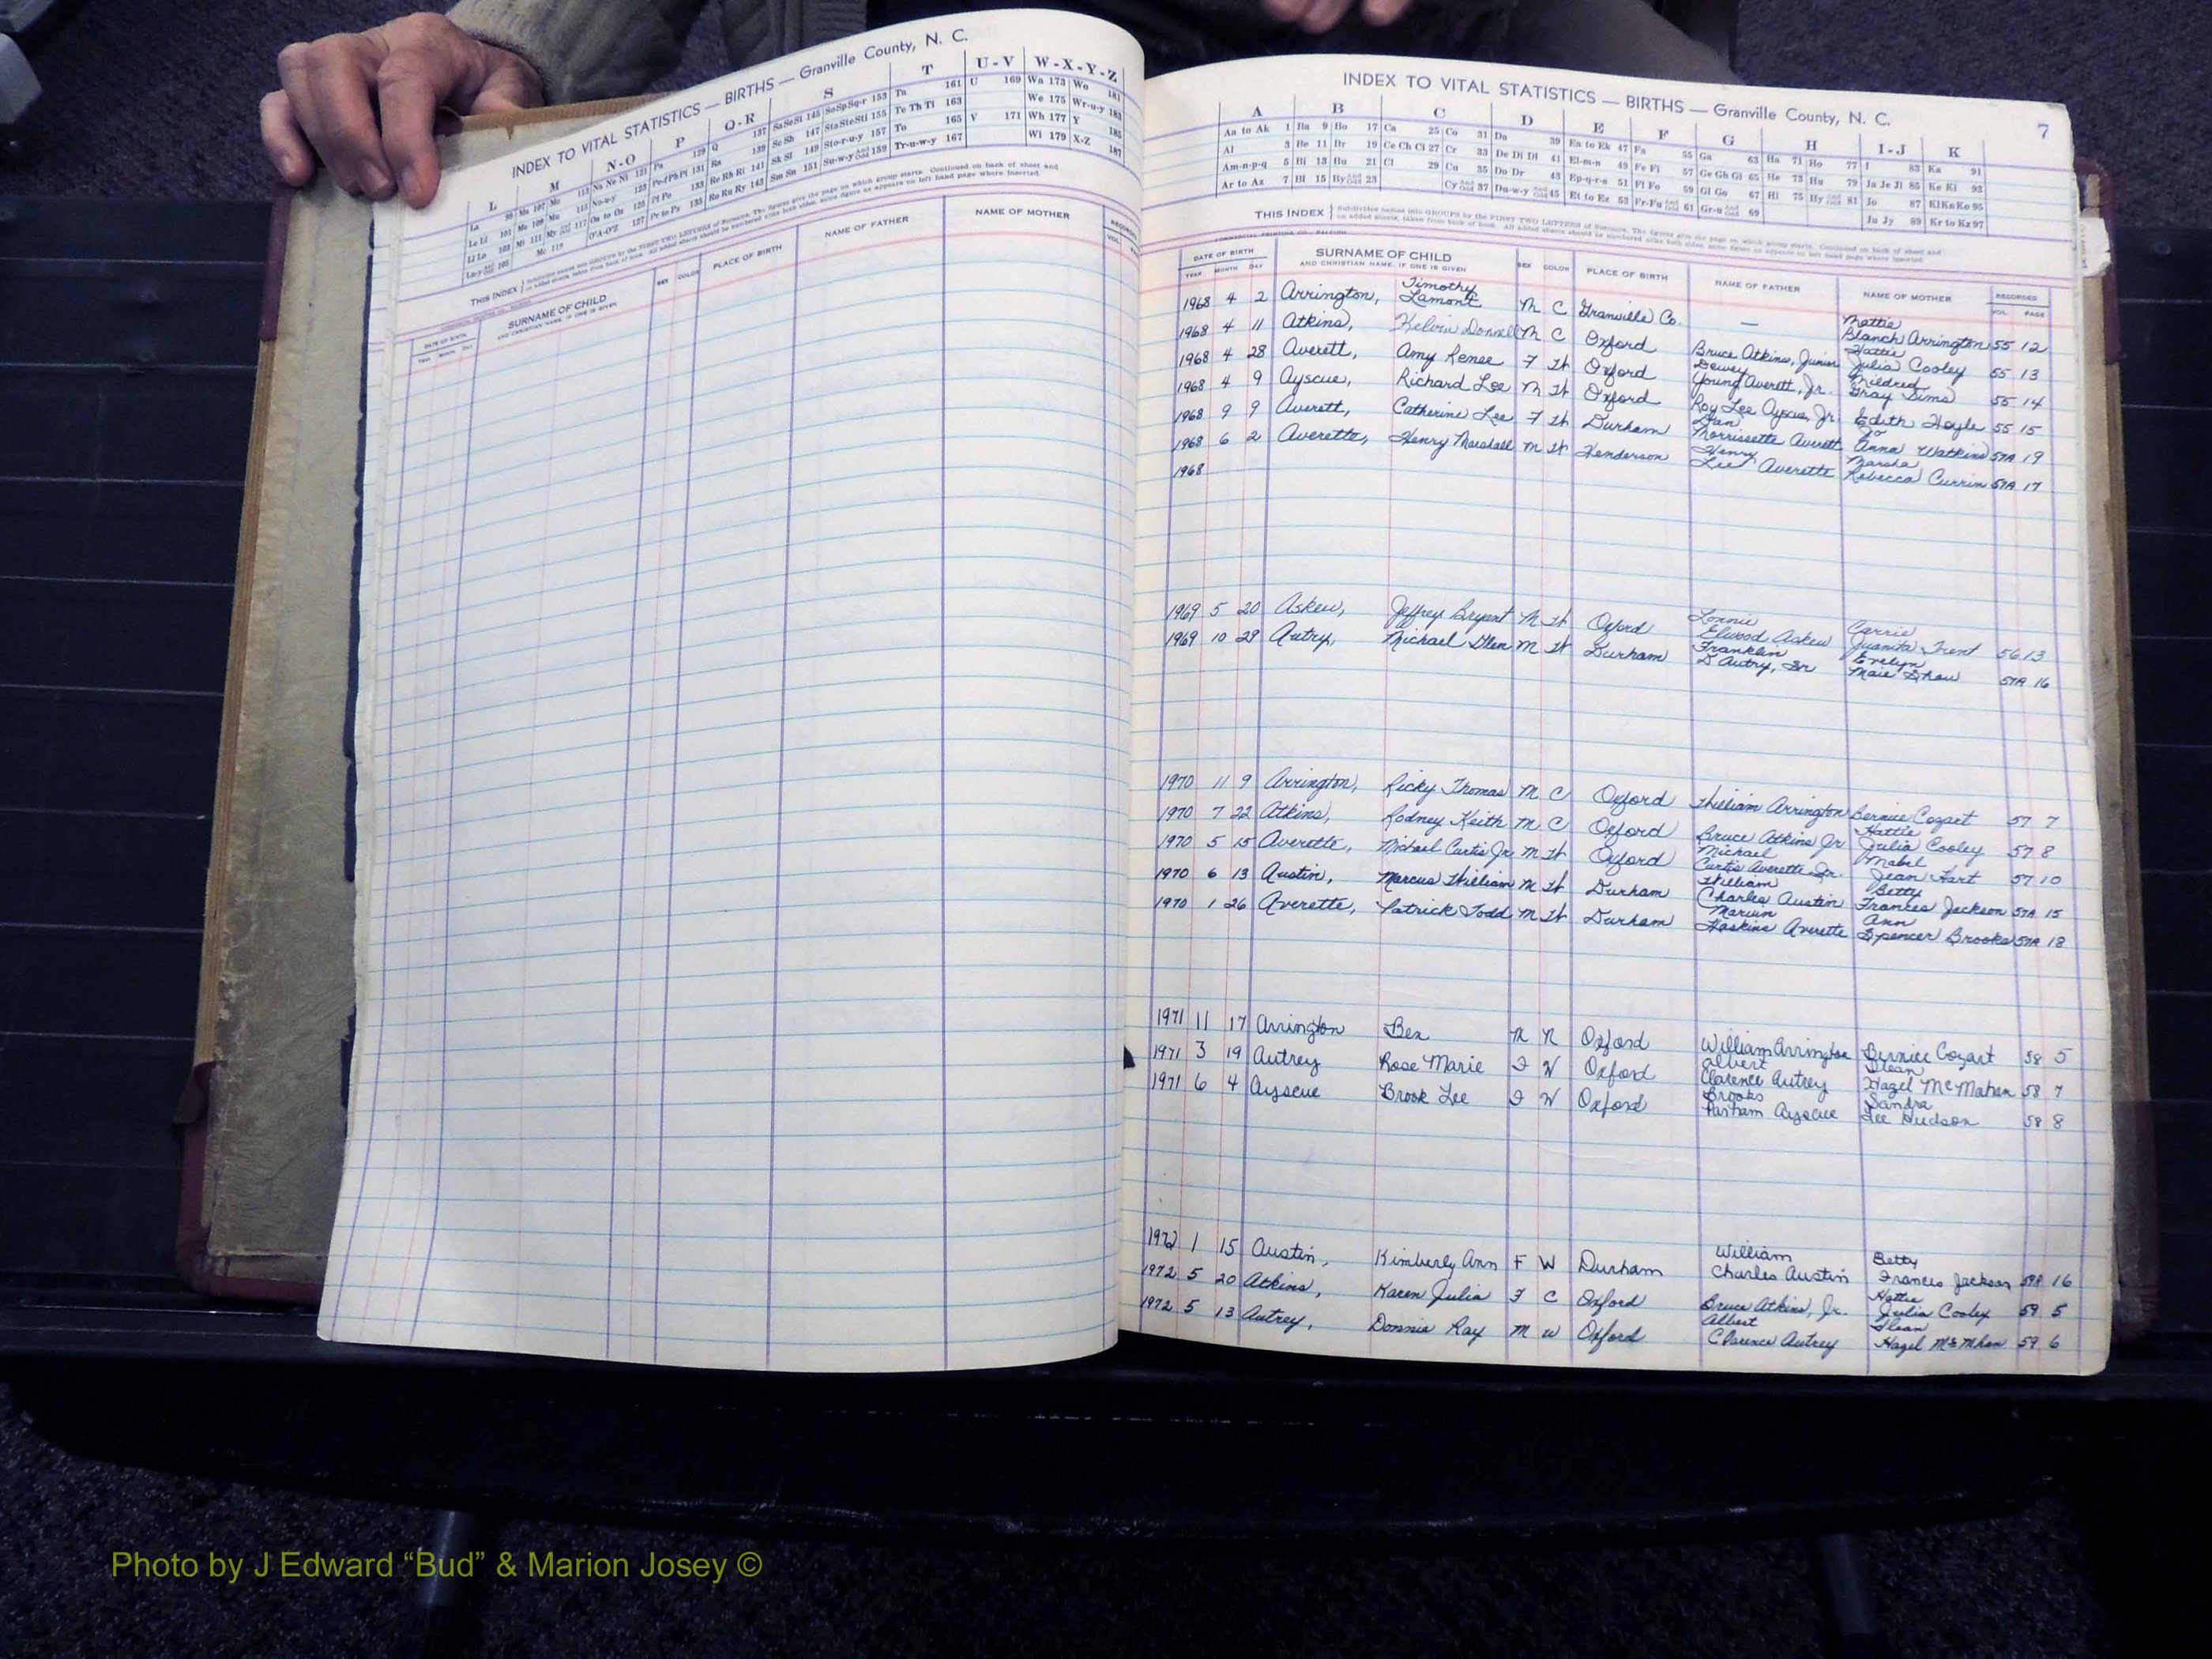 INDEX TO VITAL STATISTICS — BIRTHS — Granville County, N. C.
L M N-O P Q-R S T U-V W-X-Y-Z
THIS INDEX
DATE OF BIRTH SURNAME OF CHILD SEX COLOR PLACE OF BIRTH NAME OF FATHER NAME OF MOTHER RECORDED
YEAR MONTH DAY AND CHRISTIAN NAME, IF ONE IS GIVEN VOL.
INDEX TO VITAL STATISTICS — BIRTHS — Granville County, N. C.
7
A B C D E F G H I-J K
Aa to Ak 1 Ba 9 Bo 17 Ca 25 Co 31 Da 39 Ea to Ek 47 Fa 55 Ga 63 Ha 71 Ho 77 I 83 Ka 91
Al 3 Be 11 Br 19 Ce Ch Ci 27 Cr 33 De Di Dl 41 El-m-n 49 Fe Fi 57 Ge Gh Gi 65 He 73 Hu 79 Ja Je Ji 85 Ke Ki 93
Am-n-p-q 5 Bi 13 Bu 21 Cl 29 Cu 35 Do Dr 43 Ep-q-r-s 51 Fl Fo 59 Gl Go 67 Hi 75 Hy and Odd 81 Jo 87 Kl Kn Ko 95
Ar to Az 7 Bl 15 By and Odd 23 Cy and Odd 37 Du-w-y and Odd 45 Et to Ez 53 Fr-Fu and Odd 61 Gr-u and Odd 69 Ju Jy 89 Kr to Kz 97
THIS INDEX Subdivides names into GROUPS by the FIRST TWO LETTERS of Surname. The figures give the page on which group starts. Continued on back of sheet and
on added sheets, taken from back of book. All added sheets should be numbered alike both sides, same figure as appears on left hand page where inserted.
DATE OF BIRTH SURNAME OF CHILD SEX COLOR PLACE OF BIRTH NAME OF FATHER NAME OF MOTHER RECORDED
YEAR MONTH DAY AND CHRISTIAN NAME, IF ONE IS GIVEN VOL. PAGE
1968 4 2 Arrington, Timothy Lamont M C Granville Co. — Mattie Blanch Arrington 55 12
1968 4 11 Atkins, Kelvin Donnell M C Oxford Bruce Atkins, Junior Hattie Julia Cooley 55 13
1968 4 28 Averett, Amy Renee F W Oxford Dewey Young Averett, Jr. Mildred Gray Sims 55 14
1968 4 9 Ayscue, Richard Lee M W Oxford Roy Lee Ayscue, Jr. Edith Hoyle 55 15
1968 9 9 Averett, Catherine Lee F W Durham Dan Morrissette Averett Jo Anna Watkins 57A 19
1968 6 2 Averette, Henry Marshall M W Henderson Henry Lee Averette Marsha Rebecca Currin 57A 17
1968
1969 5 20 Askew, Jeffrey Bryant M W Oxford Lonnie Elwood Askew Carrie Juanita Trent 56 13
1969 10 29 Autry, Michael Glen M W Durham Franklin D Autry, Sr Evelyn Maie Shaw 57A 16
1970 11 9 Arrington, Ricky Thomas M C Oxford William Arrington Bernice Cozart 57 7
1970 7 22 Atkins, Rodney Keith M C Oxford Bruce Atkins Jr Hattie Julia Cooley 57 8
1970 5 15 Averette, Michael Curtis Jr M W Oxford Michael Curtis Averette Jr. Mabel Jean Hart 57 10
1970 6 13 Austin, Marcus William M W Durham William Charles Austin Betty Frances Jackson 57A 15
1970 1 26 Averette, Patrick Todd M W Durham Marvin Haskins Averette Ann Spencer Brooks 57A 18
1971 11 17 Arrington Ben M N Oxford William Arrington Bernice Cozart 58 5
1971 3 19 Autrey Rose Marie F W Oxford Albert Clarence Autrey Glean Hazel McMahan 58 7
1971 6 4 Ayscue Brook Lee F W Oxford Brooks Parham Ayscue Sandra Lee Hudson 58 8
1972 1 15 Austin, Kimberly Ann F W Durham William Charles Austin Betty Frances Jackson 59A 16
1972 5 20 Atkins, Karen Julia F C Oxford Bruce Atkins, Jr. Hattie Julia Cooley 59 5
1972 5 13 Autrey, Donnie Ray M W Oxford Albert Clarence Autrey Glean Hazel McMhan 59 6
Photo by J Edward “Bud” & Marion Josey ©